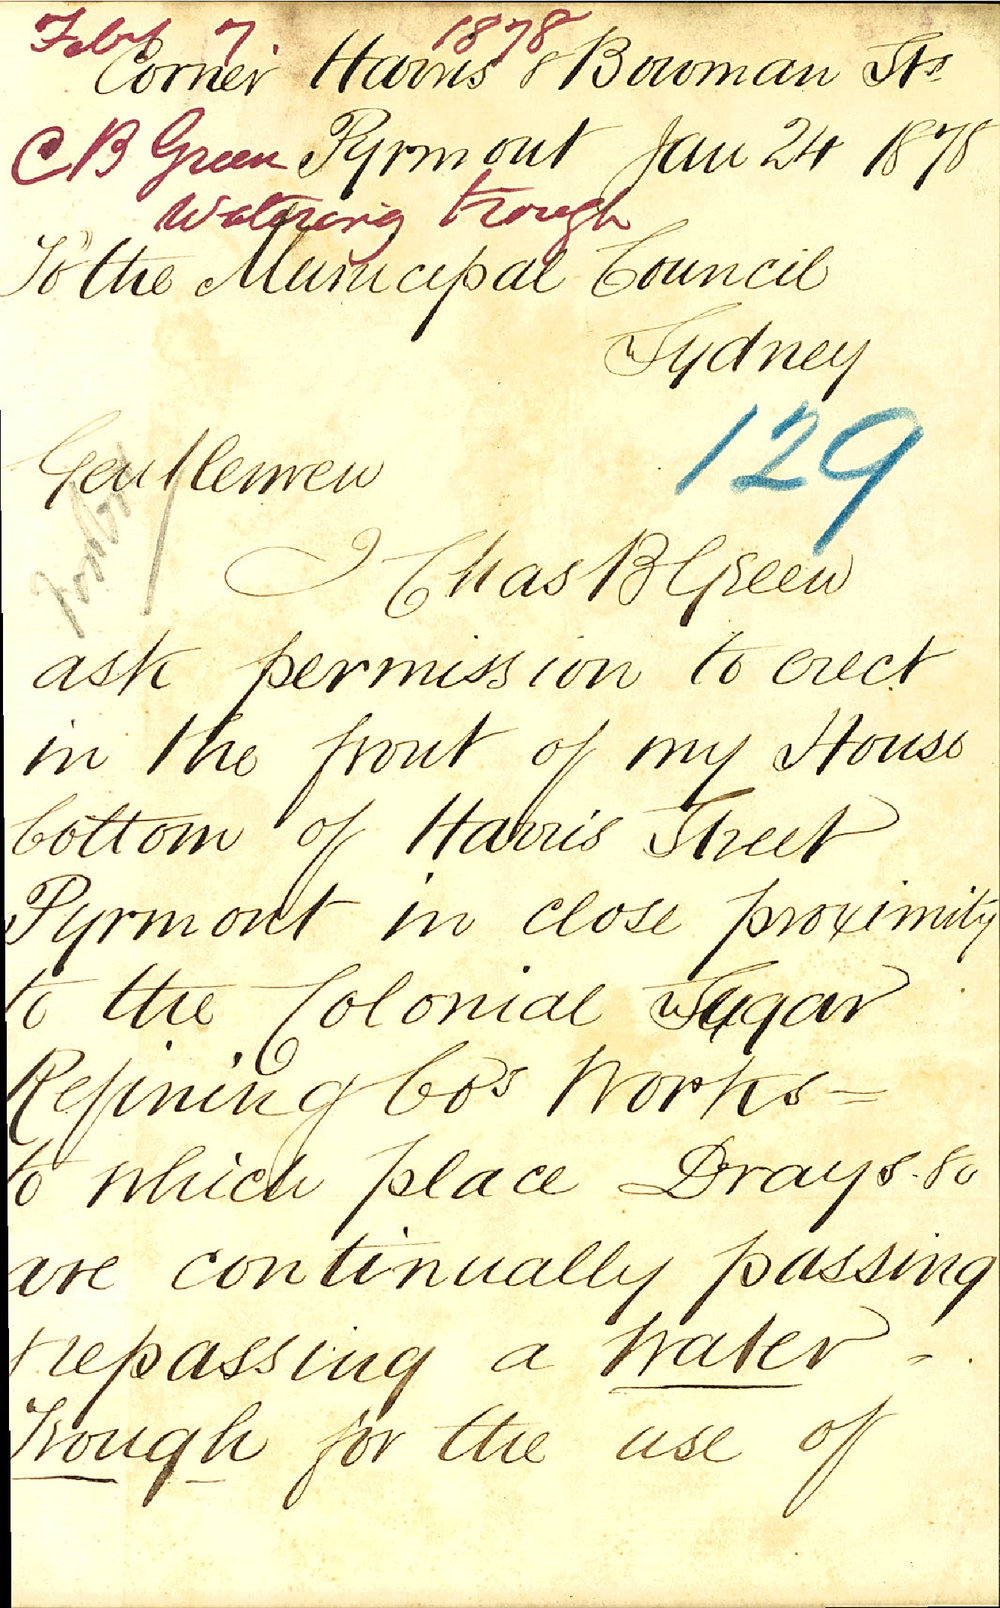 Feby 7. 1878
Corner Harris & Bowman Sts
C B Green
Pyrmont Jan 24 1878
Watering trough
To the Municipal Council
Sydney
129
Gentlemen
I Chas B Green
ask permission to erect
in the front of my House
bottom of Harris Street
Pyrmont in close proximity
to the Colonial Sugar
Refining Co's Works =
to which place Drays &c
are continually passing
& repassing a Water -
Trough for the use of